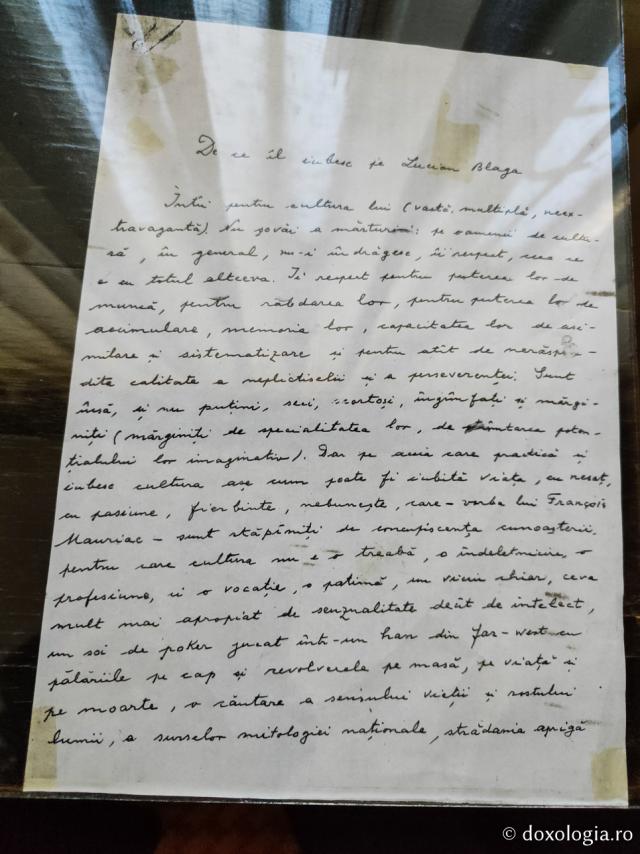 De ce îl iubesc pe Lucian Blaga
Întîi pentru cultura lui (vastă, multiplă, neex-
travagantă). Nu șovăi a mărturisi: pe oamenii de cultu-
ră, în general, nu-i îndrăgesc, îi respect, ceea ce
e cu totul altceva. Îi respect pentru puterea lor de
muncă, pentru răbdarea lor, pentru puterea lor de
acumulare, memoria lor, capacitatea lor de asi-
milare și sistematizare și pentru atît de nerăspî-
dita calitate a neplictiselii și a perseverenței. Sunt
însă, și nu puțini, seci, scorțoși, îngîmfați și mărgi-
niți (mărginiți de specialitatea lor, de limitarea poten-
țialului lor imaginativ). Dar pe aceia care practică și
iubesc cultura așa cum poate fi iubită viața, cu neseț,
cu pasiune, fierbinte, nebunește, care - vorba lui François
Mauriac - sunt stăpîniți de concupiscența cunoașterii,
pentru care cultura nu e o treabă, o îndeletnicire, o
profesiune, ci o vocație, o patimă, un viciu chiar, ceva
mult mai apropiat de senzualitate decît de intelect,
un soi de poker jucat într-un han din far-west cu
pălăriile pe cap și revolverele pe masă, pe viață și
pe moarte, o căutare a sensului vieții și rostului
lumii, a surselor mitologiei naționale, strădania aprigă
© doxologia.ro